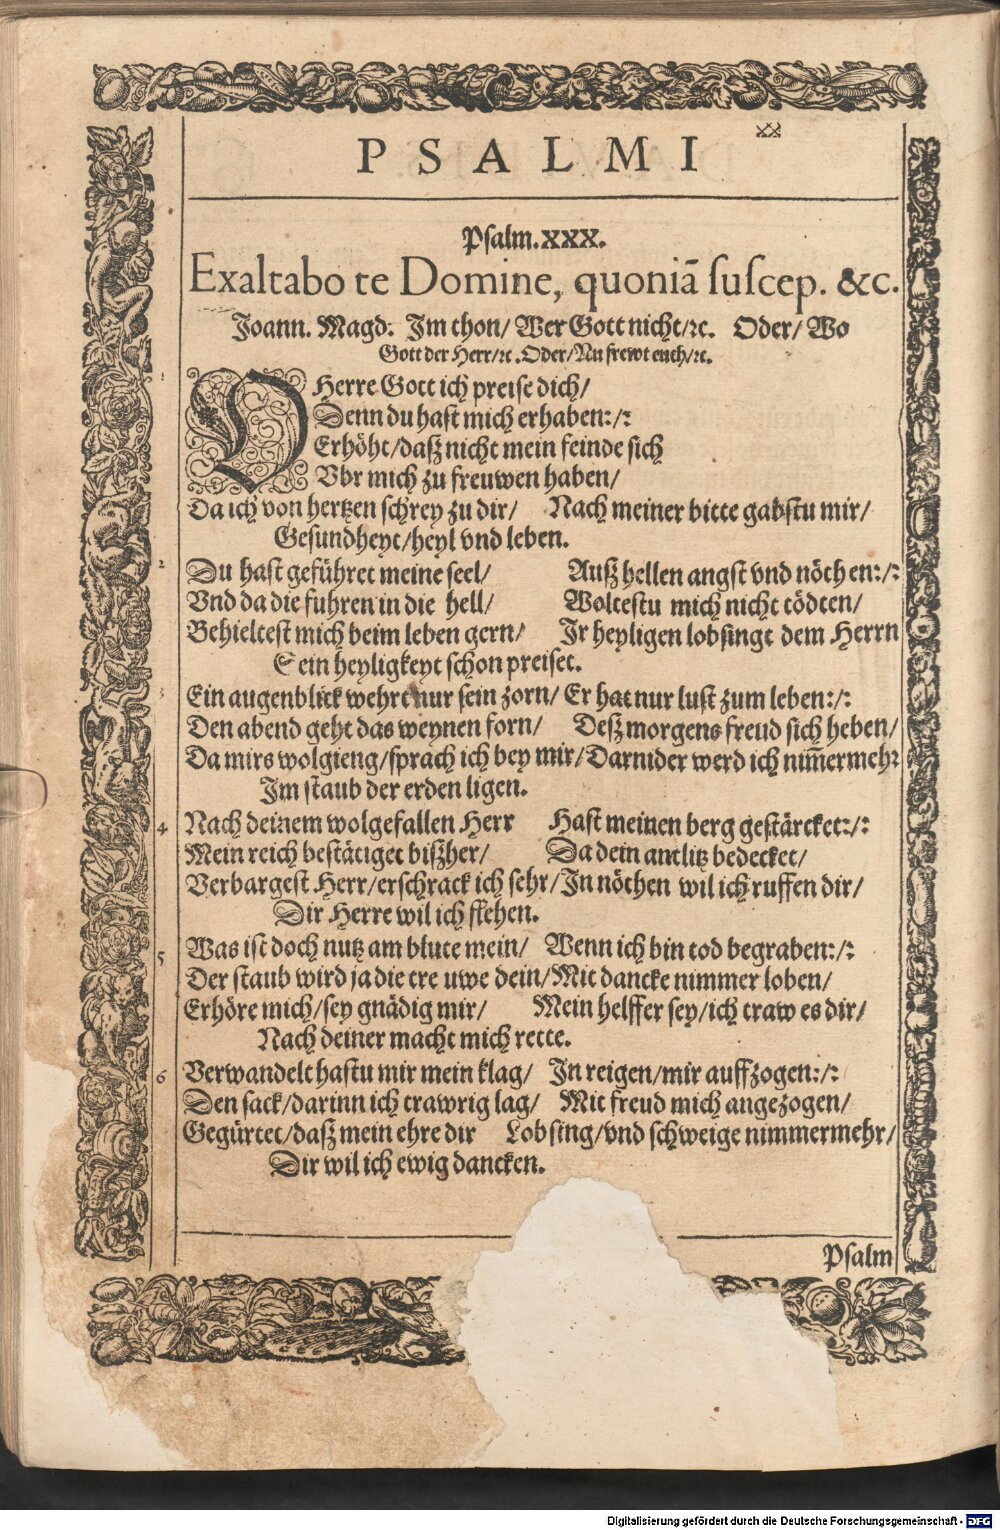 PSALMI
Psalm. XXX.
Exaltabo te Domine, quoniā ſuſcep. &c.
Joann. Magd: Im thon/ Wer Gott nicht/ꝛc. Oder/ Wo
Gott der Herr/ꝛc. Oder/Nu frewt euch/ꝛc.
1 O Herre Gott ich preiſe dich/
Denn du haſt mich erhaben:/:
Erhöht/daſz nicht mein feinde ſich
Vbr mich zu freuwen haben/
Da ich von hertzen ſchrey zu dir/ Nach meiner bitte gabſtu mir/
Geſundheyt/heyl vnd leben.
2 Du haſt geführet meine ſeel/ Auſz hellen angſt vnd nöthen:/:
Vnd da die fuhren in die hell/ Wolteſtu mich nicht tödten/
Behielteſt mich beim leben gern/ Ir heyligen lobſingt dem Herrn
Sein heyligkeyt ſchon preiſet.
3 Ein augenblick wehrt nur ſein zorn/ Er hat nur luſt zum leben:/:
Den abend geht das weynen forn/ Deſz morgens freud ſich heben/
Da mirs wolgieng/ſprach ich bey mir/ Darnider werd ich nim̄ermehr
Im ſtaub der erden ligen.
4 Nach deinem wolgefallen Herr Haſt meinen berg geſtärcket:/:
Mein reich beſtätiget biſzher/ Da dein antlitz bedecket/
Verbargeſt Herr/erſchrack ich ſehr/ In nöthen wil ich ruffen dir/
Dir Herre wil ich flehen.
5 Was iſt doch nutz am blute mein/ Wenn ich bin tod begraben:/:
Der ſtaub wird ja die treuwe dein/ Mit dancke nimmer loben/
Erhöre mich/ſey gnädig mir/ Mein helffer ſey/ich traw es dir/
Nach deiner macht mich rette.
6 Verwandelt haſtu mir mein klag/ In reigen/mir auffzogen:/:
Den ſack/darinn ich trawrig lag/ Mit freud mich angezogen/
Gegürtet/daſz mein ehre dir Lobſing/vnd ſchweige nimmermehr/
Dir wil ich ewig dancken.
Psalm
Digitalisierung gefördert durch die Deutsche Forschungsgemeinschaft - DFG